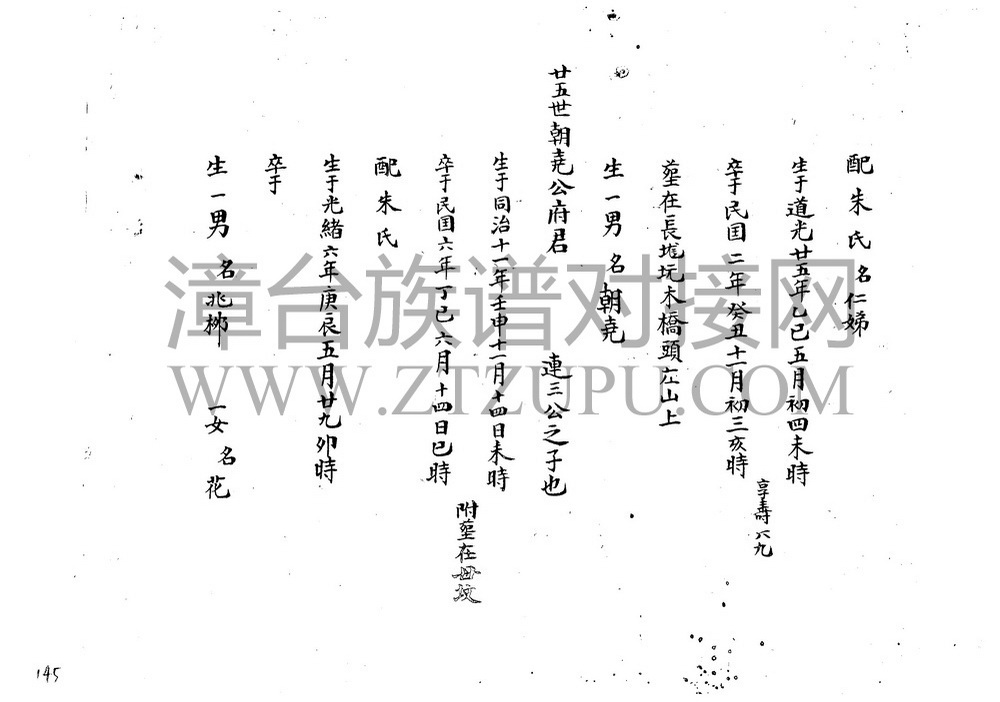 配朱氏 名仁娣
生于道光廿五年乙巳五月初四未時
卒于民国二年癸丑十一月初三亥時
享壽六九
塟在長坑木橋頭左山上
生一男 名朝堯
廿五世朝堯公府君 連三公之子也
生于同治十一年壬申十一月十四日未時
卒于民国六年丁巳六月十四日巳時
附塟在母坟
配朱氏
生于光緒六年庚辰五月廿九卯時
卒于
生一男 名兆栁 一女 名花
漳台族谱对接网
WWW.ZTZUPU.COM
145